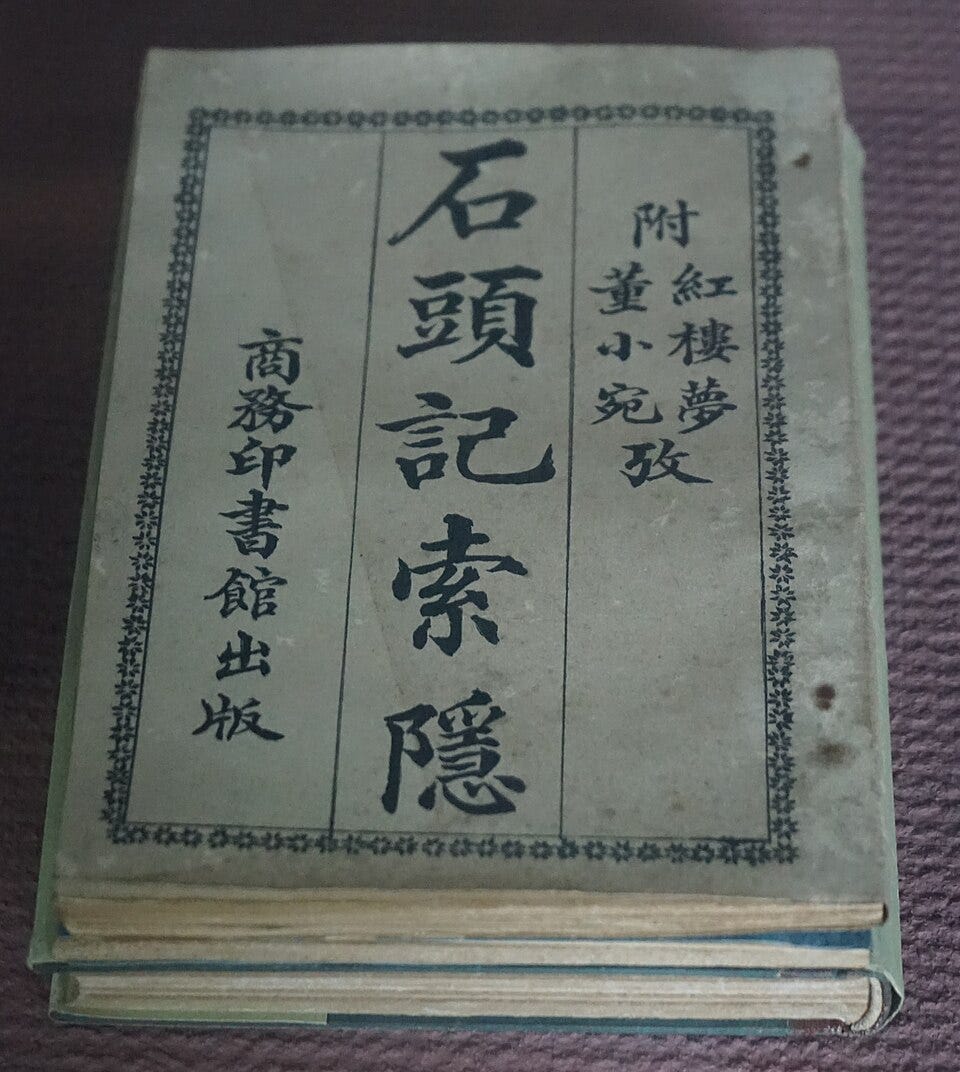 附
紅樓夢
董小宛
攷
石頭記索隱
商務印書館出版